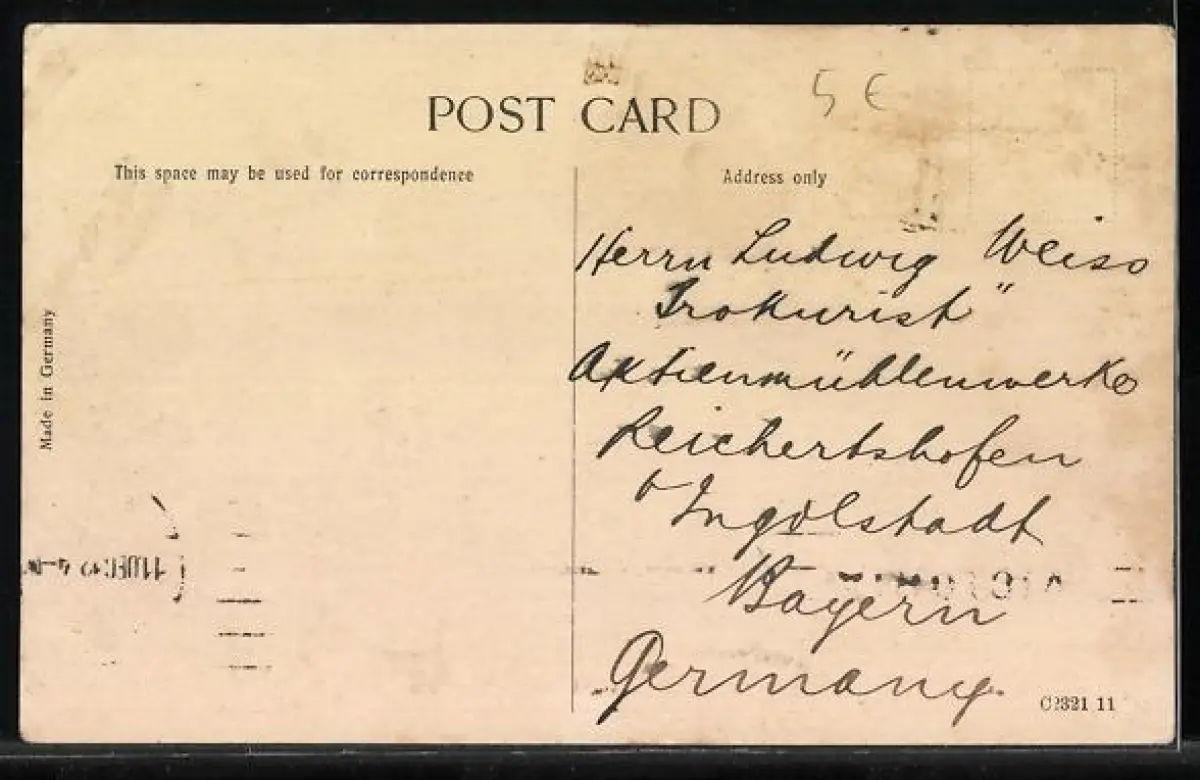 POST CARD
5 €
This space may be used for correspondence
Address only
Herrn Ludwig Weiss
"Prokurist"
Aktienmühlenwerke
Reichertshofen
b Ingolstadt
Bayern
Germany
Made in Germany
11 DEC
C2321 11